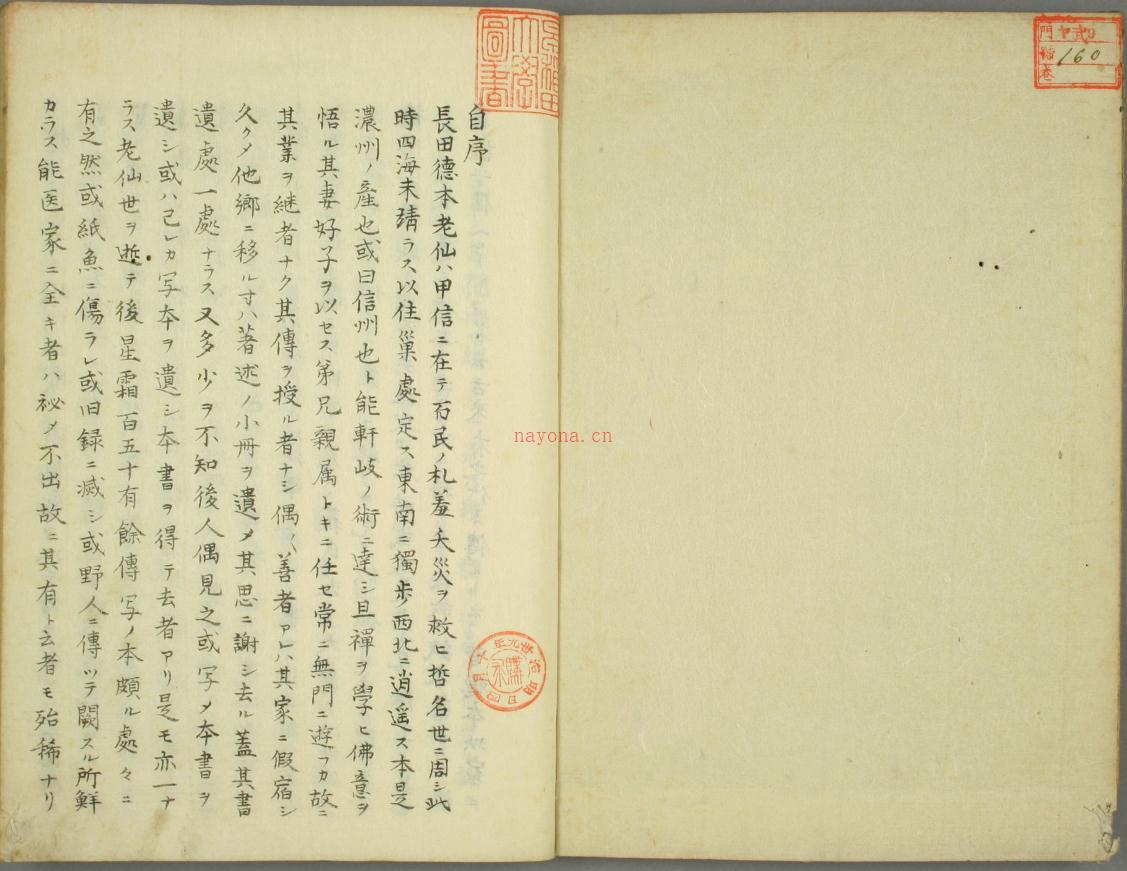 自序
長田德本老仙ハ甲信ニ在テ百民ノ札羞夭災ヲ救ヒ哲名世ニ周シ此
時四海未靖ラス以住巢處定ス東南ニ獨步西北ニ逍遥ス本是
濃州ノ産也或曰信州也ト能軒岐ノ術ニ達シ旦禪ヲ學ヒ佛意ヲ
悟ル其妻好子ヲ以セス第兄親属トキニ任セ常ニ無門ニ遊フカ故ニ
其業ヲ継者ナク其傳ヲ授ル者ナシ偶〱善者アレハ其家ニ假宿シ
久クメ他鄉ニ移ル寸ハ著述ノ小冊ヲ遺メ其思ニ謝シ去ル蓋其書
遺處一處ナラス又多少ヲ不知後人偶見之或写メ本書ヲ
遺シ或ハ己レカ写本ヲ遺シ本書ヲ得テ去者アリ是モ亦一ナ
ラス老仙世ヲ逝テ後星霜百五十有餘傳写ノ本頗ル處々ニ
有之然或紙魚ニ傷ラレ或旧録ニ滅シ或野人ニ傳ツテ闕スル所鮮
カラス能医家ニ全キ者ハ祕メ不出故ニ其有ト云者モ殆稀ナリ
早稲田大學圖書
門 ヤ 9
號 160
卷
明治卅九年十月四日
購求
nayona.cn